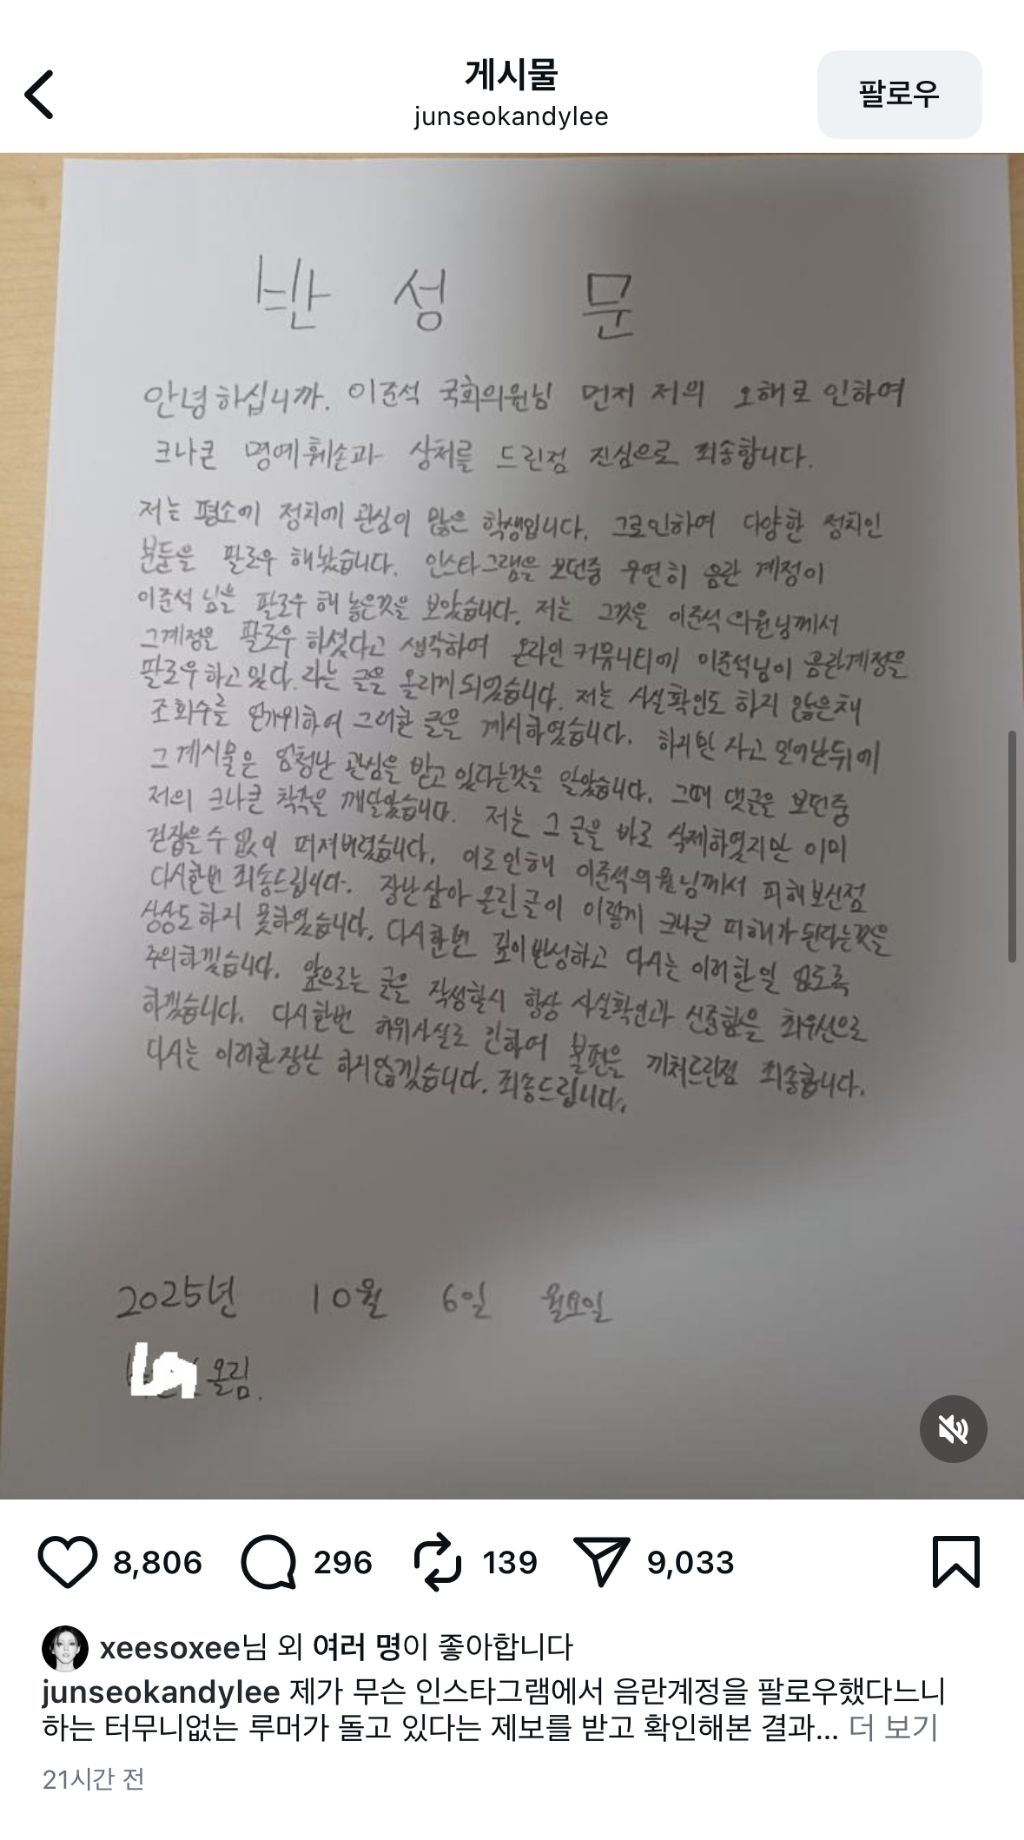 게시물
junseokandylee
팔로우
반 성 문
안녕하십니까. 이준석 국회의원님 먼저 저의 오해로 인하여
크나큰 명예훼손과 상처를 드린점 진심으로 죄송합니다.
저는 평소에 정치에 관심이 많은 학생입니다. 그로인하여 다양한 정치인
분들을 팔로우 해놨습니다. 인스타그램을 보던중 우연히 음란 계정이
이준석 님을 팔로우 해 놓은것을 보았습니다. 저는 그것을 이준석 의원님께서
그계정을 팔로우 하셨다고 생각하여 온라인 커뮤니티에 이준석님이 음란계정을
팔로우하고 있다. 라는 글을 올리게 되었습니다. 저는 사실확인도 하지 않은채
조회수를 얻기위하여 그러한 글을 게시하였습니다. 하지만 자고 일어난뒤에
그 게시물은 엄청난 관심을 받고 있다는것을 알았습니다. 그때 댓글을 보던중
저의 크나큰 착각을 깨달았습니다. 저는 그 글을 바로 삭제하였지만 이미
걷잡을수 없이 퍼져버렸습니다. 이로인해 이준석의원님께서 피해보신점
다시한번 죄송드립니다. 장난삼아 올린글이 이렇게 크나큰 피해가 된다는것을
상상도 하지 못하였습니다. 다시한번 깊이반성하고 다시는 이러한일 없도록
주의하겠습니다. 앞으로는 글을 작성할시 항상 사실확인과 신중함을 최우선으로
하겠습니다. 다시한번 허위사실로 인하여 불편을 끼쳐드린점 죄송합니다.
다시는 이러한 장난 하지않겠습니다. 죄송드립니다.
2025년 10월 6일 월요일
올림.
8,806 296 139 9,033
xeesoxee님 외 여러 명이 좋아합니다
junseokandylee 제가 무슨 인스타그램에서 음란계정을 팔로우했다느니
하는 터무니없는 루머가 돌고 있다는 제보를 받고 확인해본 결과... 더 보기
21시간 전